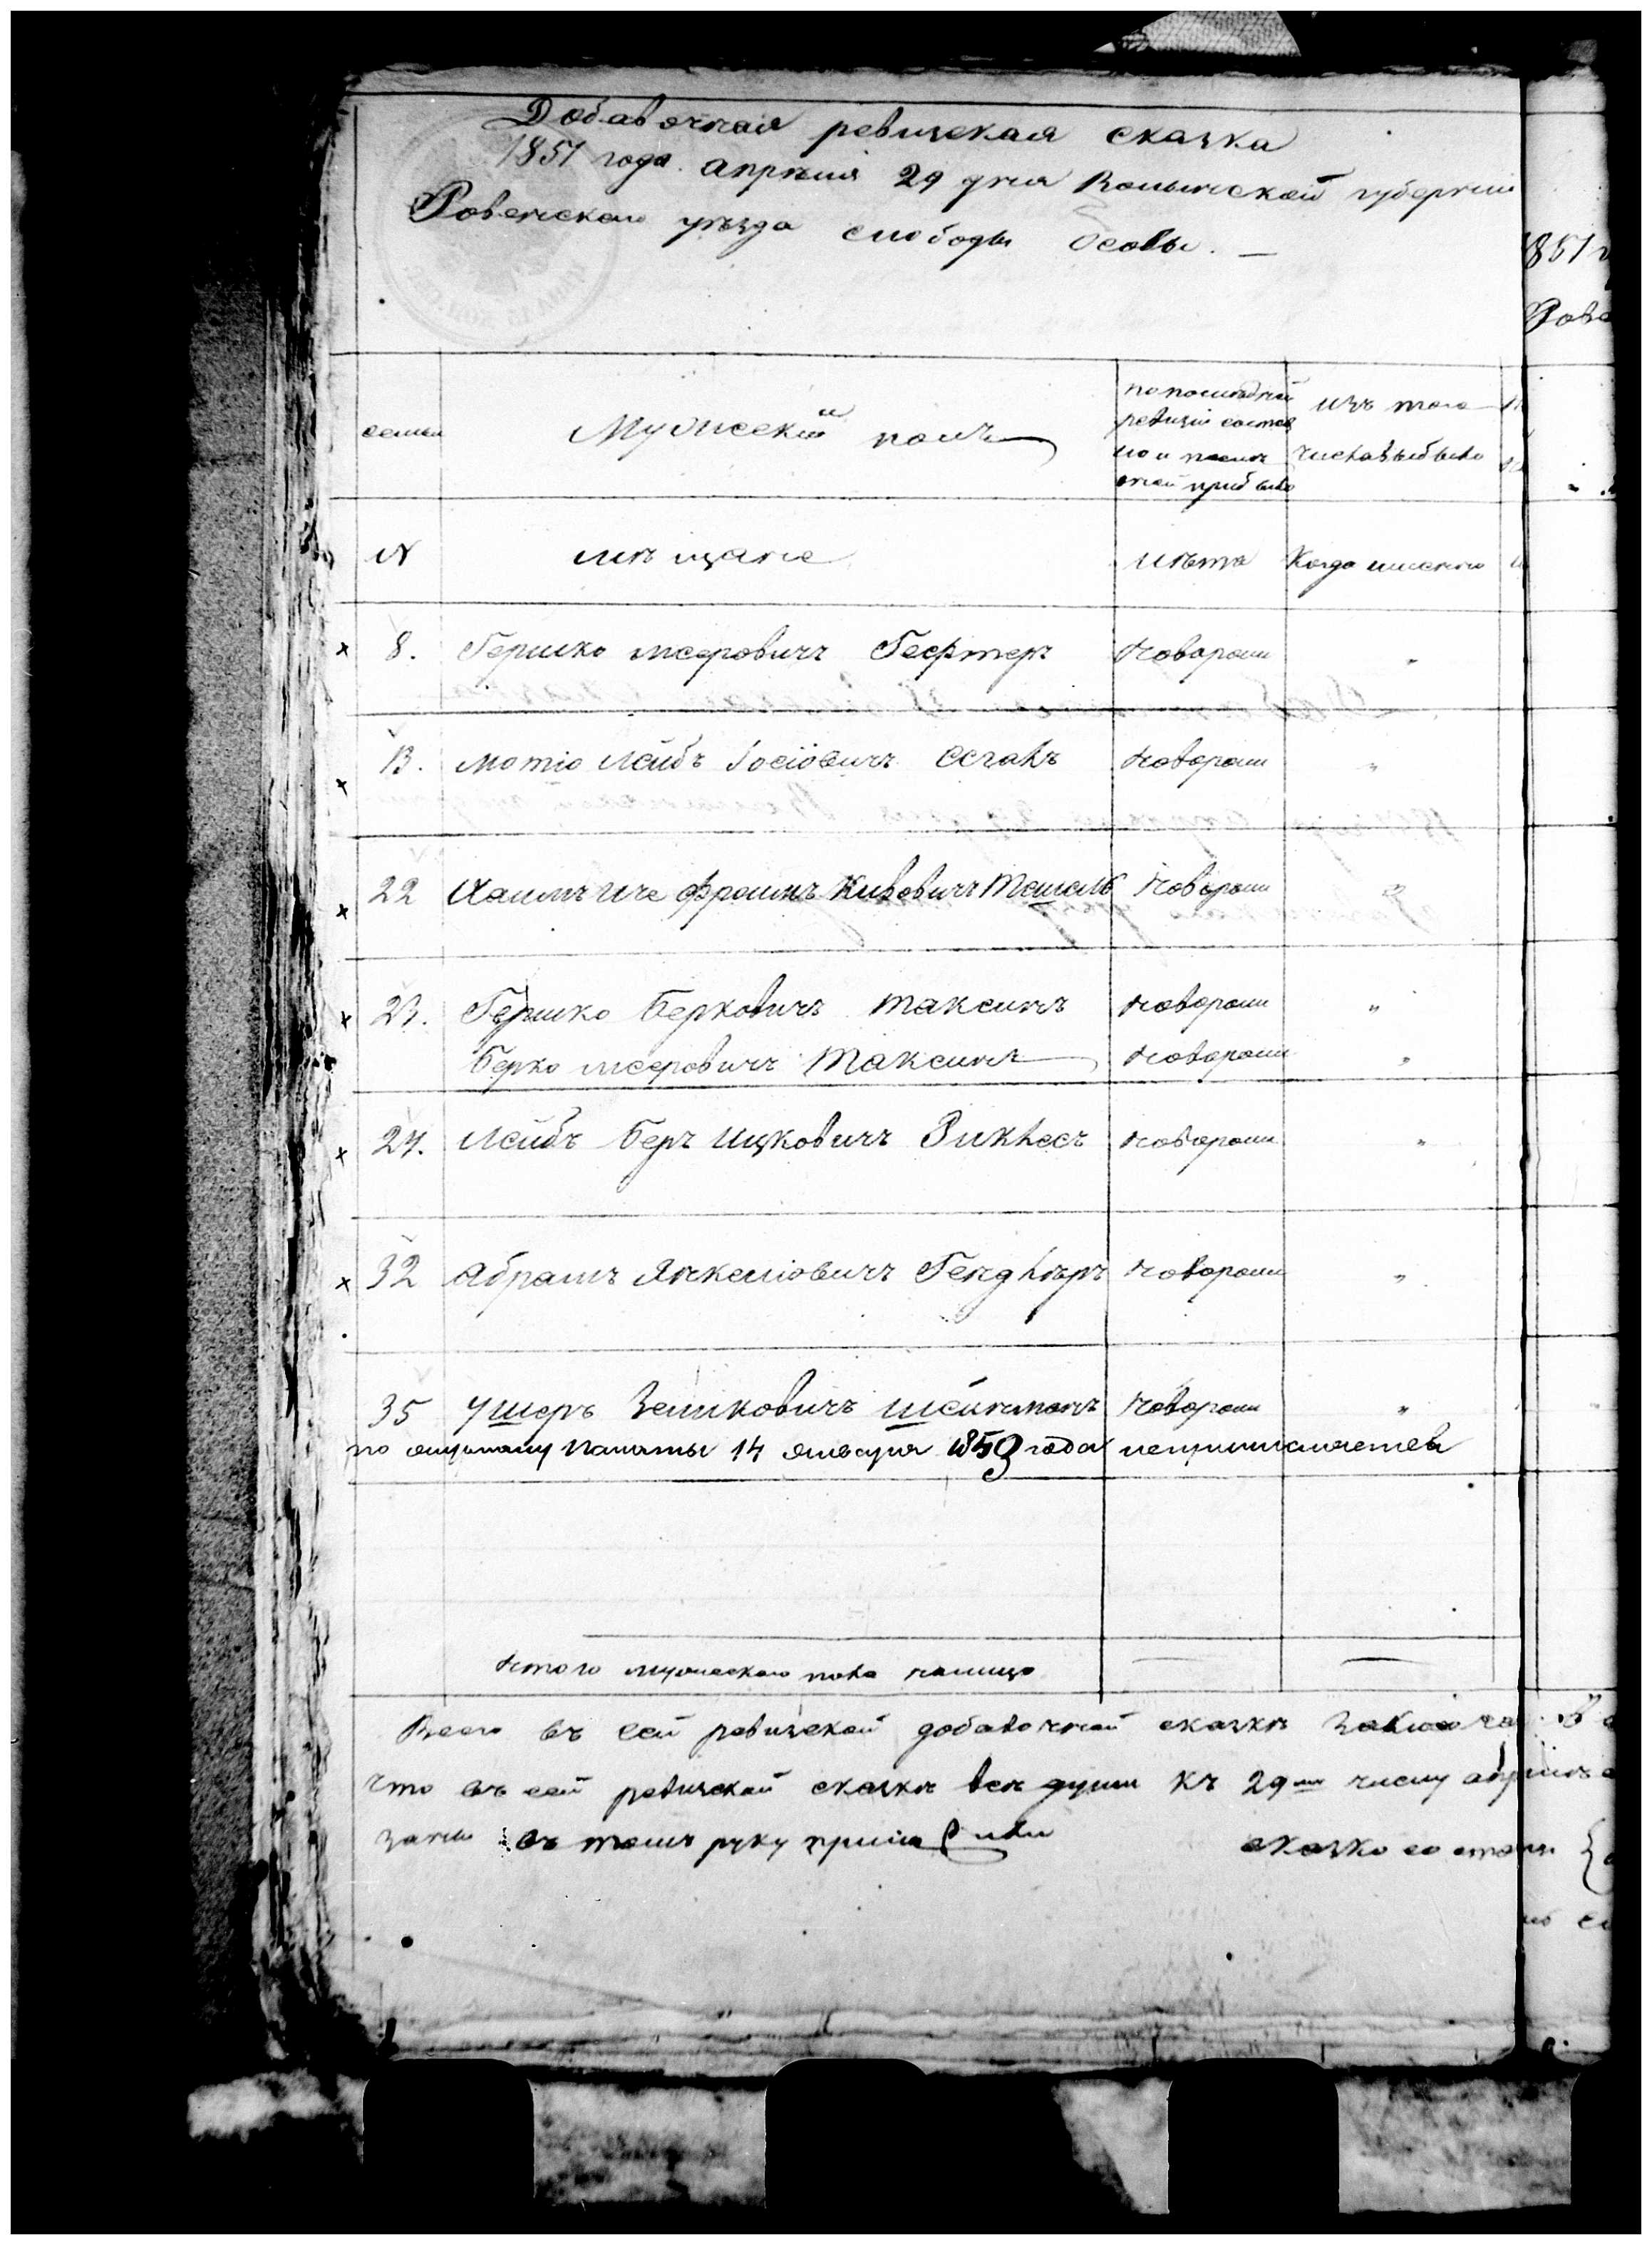 Добавочная ревизская сказка
1851 года апрѣля 29 дня Волынской губерніи
Ровенскаго уѣзда слободы Осовы. —
семьи
Мужескій полъ
по послѣдней
ревизіи состоя
ло и послѣ
оной прибыло
изъ того
числа выбыло
N
мѣщане
лѣта
Когда именно
8. Гершко Мееровичъ Гефтеръ новорож "
13. Мотіо Лейбъ Іосіовичъ новорож "
22 Хаимъ Иче Фроимъ Кивовичъ новорож "
23. Гершко Берковичъ Таксинъ новорож "
Берко Мееровичъ Таксинъ новорож "
24. Лейбъ Беръ Ицковичъ Зиклесъ новорож "
32 Абрамъ Янкеліовичъ Гендлѣръ новорож "
35 Ушеръ Зеликовичъ Шейнманъ новорож "
по палаты 14 января 1853 года непричисляется
Итого мужескаго пола налицо
Всего въ сей ревизской добавочной сказкѣ
что въ сей ревизской сказкѣ всѣ души къ 29му числу
заны въ томъ руку сказко со